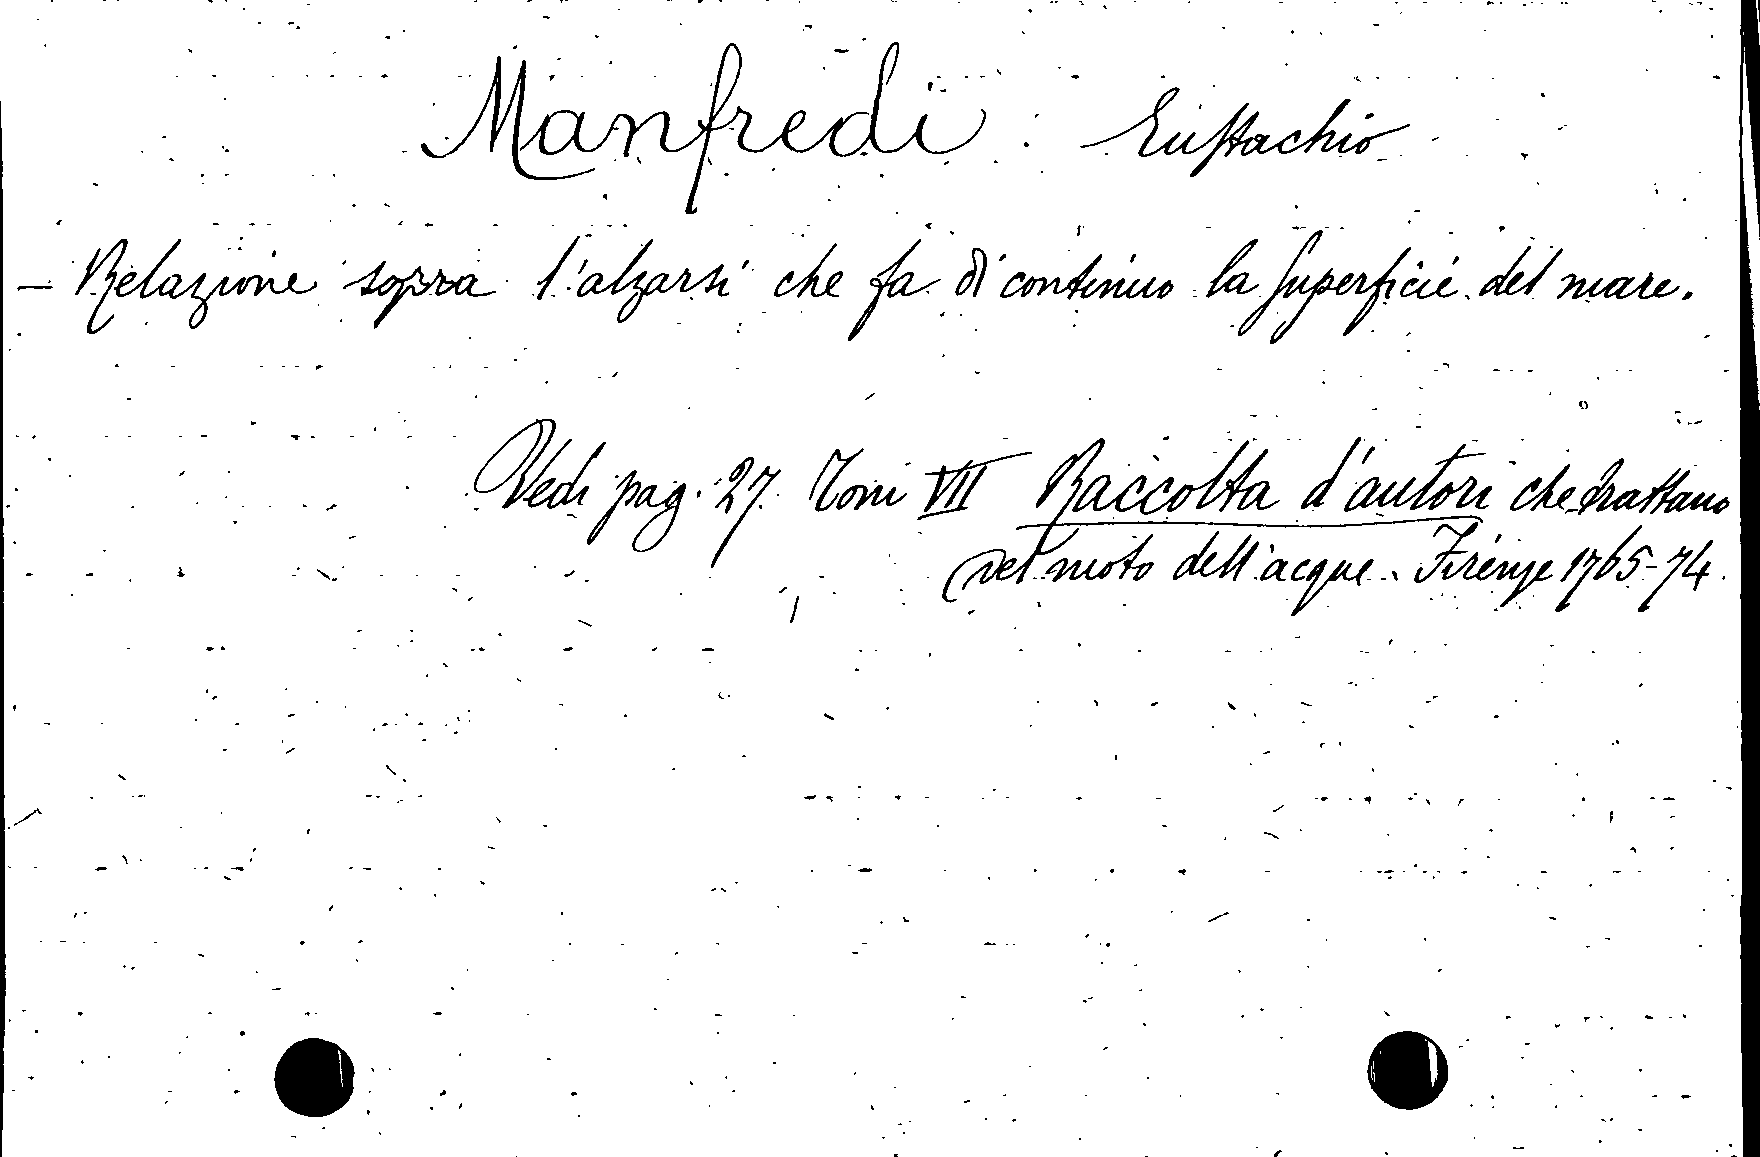 Manfredi Eustachio
- Relazione sopra l'alzarsi che fa di continuo la superficie del mare.
Vedi pag. 27. Tom VII Raccolta d'autori che trattano
del moto dell'acque. Firenze 1765-74